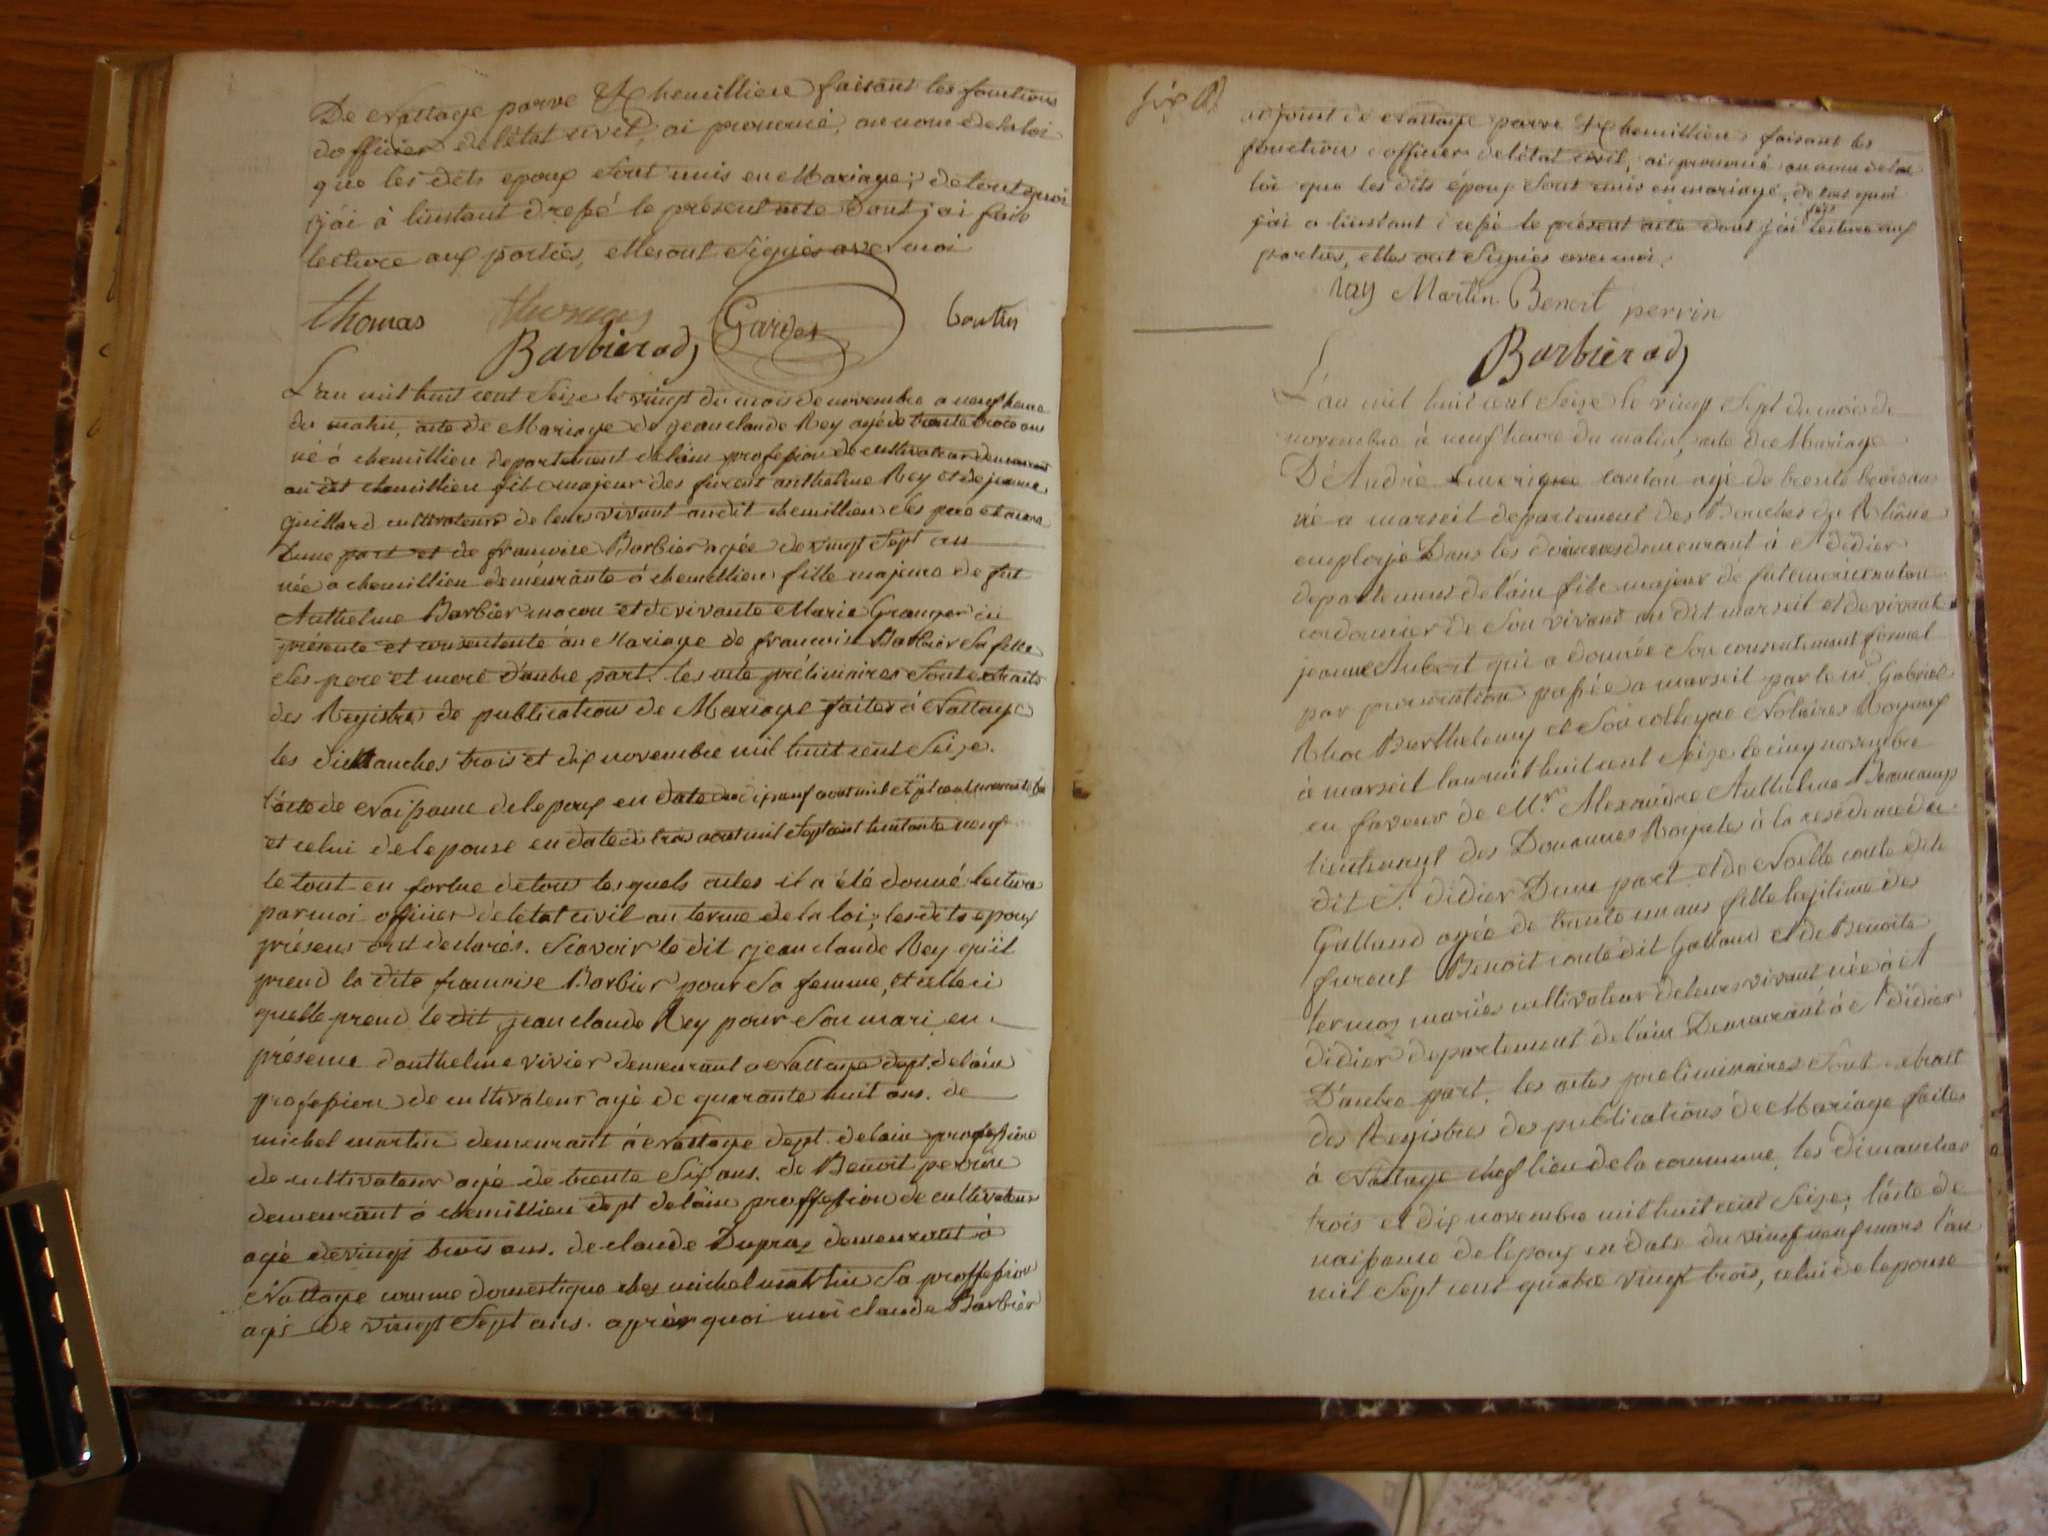 De Nattage parve & chemillieu faisant les fonctions
dofficier deletat civil, ai prononcé, au nom de la loi
que les dits epoux sont unis en Mariage; de tout quoi
j'ai à linstant dressé le présent acte dont j'ai fait
lecture aux parties, elles ont signés avec moi
thomas thomas Garden boutin
Barbier adj
L'an mil huit cent seize le vingt du mois de novembre a neuf heure
du matin, acte de Mariage de jean claude Rey agé de trente trois ans
né à chemillieu departement de lain profession de cultivateur demeurant
au dit chemillieu fils majeur des furent anthelme Rey et de jeanne
guillard cultivateurs de leurs vivant audit chemillieu ses pere et mere
dune part et de francoise Barbier agée de vingt sept ans
née à chemillieu demeurante à chemillieu fille majeure de fut
Anthelme Barbier macon et de vivante Marie Granger ici
présente et consentente au Mariage de francoise Barbier sa fille
ses pere et mere d'autre part. les acte préliminaires sont extraits
des Registres de publications de Mariage faites à Nattage
les dimanches trois et dix novembre mil huit cent seize.
l'acte de naissance de lepoux en date du dix neuf aout mil sept cent
et celui de lepouse en date du trois aout mil sept cent huitante neuf
le tout en forme de tous les quels actes il a été donné lecture
par moi officier de letat civil au terme de la loi; les dits epoux
présens ont declarés. Scavoir le dit jean claude Rey qu'il
prend la dite francoise Barbier pour sa femme, et celle ci
quelle prend le dit jean claude Rey pour son mari en
présence danthelme vivier demeurant a Nattage dept. de lain
profession de cultivateur agé de quarante huit ans. de
michel martin demeurant à Nattage dept. de lain profession
de cultivateur agé de trente six ans. de Benoit perrin
demeurant à chemillieu dept de lain proffession de cultivateur
agé de vingt trois ans. de claude Dupraz demeurant à
Nattage comme domestique chez michel martin sa proffession
agé de vingt sept ans. après quoi moi claude Barbier
six
adjoint de Nattage parve & chemillieu faisant les
fonction dofficier de létat civil, ai prononcé au nom de la
loi que les dits époux sont unis en mariage, de tout quoi
fait
j'ai a linstant dressé le présent acte dont j'ai lecture aux
parties, elles ont signés avec moi.
ray Martin Benoit perrin
Barbier adj
L'an mil huit cent seize le vingt sept du mois de
novembre à neuf heure du matin, acte de Mariage
D'André Emerique couton agé de trente trois ans
né a marseil departement des Bouches du Rhône
employé Dans les douannes demeurant à St didier
departement de lain fils majeur de fut emerie couton
cordonnier de son vivant au dit marseil et de vivante
jeanne Aubert qui a donnée son consentement formel
par procuration passée a marseil par le Mr. Gabriel
Barthelemy et son collegue Notaires Royaux
à marseil lan mil huit cent seize le cinq novembre
en faveur de Mr. Alexandre Anthelme Beaucamp
lieutenant des Douannes Royales à la residence du
dit St. didier Dune part et de Noelle conte dite
Galland agée de trente un ans fille legitime des
furent Benoit conte dit Galland et de Benoite
termoz mariés cultivateur de leurs vivant née à St
didier departement de lain Demeurant à St didier
D'autre part. les actes preliminaires sont extrait
des Registres des publications de Mariage faites
à Nattage chef lieu de la commune, les dimanches
trois et dix novembre mil huit cent seize; l'acte de
naissance de l'epoux en date du vingt neuf mars l'an
mil sept cent quatre vingt trois, celui de lepouse